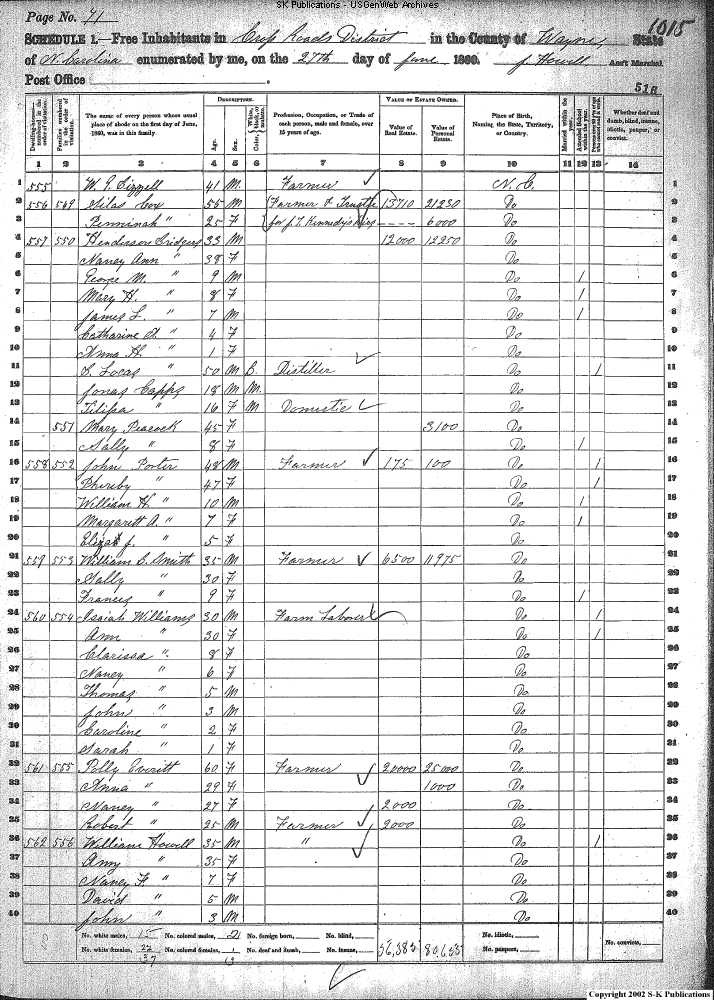 SK Publications - USGenWeb Archives
Page No. 41
1015
SCHEDULE 1.—Free Inhabitants in Cross Roads District in the County of Wayne, State
of N. Carolina enumerated by me, on the 27th day of June 1860. J Howell Ass't Marshal
518
Post Office
Dwelling-houses—numbered in the order of visitation.
Families numbered in the order of visitation.
The name of every person whose usual place of abode on the first day of June, 1860, was in this family.
DESCRIPTION.
Age.
Sex.
Profession, Occupation, or Trade of each person, male and female, over 15 years of age.
VALUE OF ESTATE OWNED.
Value of Real Estate.
Value of Personal Estate.
Place of Birth, Naming the State, Territory, or Country.
Married within the year.
Attended School within the year.
Whether deaf and dumb, blind, insane, idiotic, pauper, or convict.
1 2 3 4 5 6 7 8 9 10 11 12 13 14
1 555 W. G. 41 M. Farmer N. C. 1
2 556 549 Silas Cox 55 M Farmer & Trustee 13710 21230 Do 2
3 Penninah " 25 F for J. T. Kennedy's - - - - 6000 Do 3
4 557 550 Henderson 33 M 12000 12250 Do 4
5 Nancy Ann " 38 F Do 5
6 George M. " 9 M Do / 6
7 Mary H. " 8 F Do / 7
8 James L. " 7 M Do / 8
9 Catharine " 4 F Do 9
10 Anna H. " 1 F Do 10
11 Lucas " 50 M B. Distiller Do / 11
12 Jonas Capps 18 M M. Do 12
13 16 F M Domestic Do 13
14 551 Mary Peacock 45 F 3100 Do 14
15 Sally " 8 F Do / 15
16 558 552 John Porter 48 M Farmer 175 100 Do / 16
17 Phereby " 47 F Do / 17
18 William H. " 10 M Do / 18
19 Margarett A. " 7 F Do / 19
20 J. " 5 F Do 20
21 559 553 William C. Smith 35 M Farmer 6500 11975 Do 21
22 Sally " 30 F Do 22
23 Frances " 9 F Do / 23
24 560 554 Isaiah Williams 30 M Farm Laborer Do / 24
25 Ann " 30 F Do / 25
26 Clarissa " 8 F Do 26
27 Nancy " 6 F Do 27
28 Thomas " 5 M Do 28
29 John " 3 M Do 29
30 Caroline " 2 F Do 30
31 Sarah " 1 F Do 31
32 561 555 Polly Everitt 60 F Farmer 20000 25000 Do 32
33 Anna " 29 F 1000 Do 33
34 Nancy " 27 F 2000 Do 34
35 Robert " 25 M Farmer 2000 Do 35
36 562 556 William Howell 35 M " Do / 36
37 Amy " 35 F Do 37
38 Nancy F. " 7 F Do 38
39 David " 5 M Do 39
40 John " 3 M Do 40
No. white males, 15 No. colored males, No. foreign born, No. blind, No. idiotic, No. convicts,
No. white females, 22 No. colored females, 1 No. deaf and dumb, No. insane, 56,385 No. paupers,
37
Copyright 2002 S-K Publications